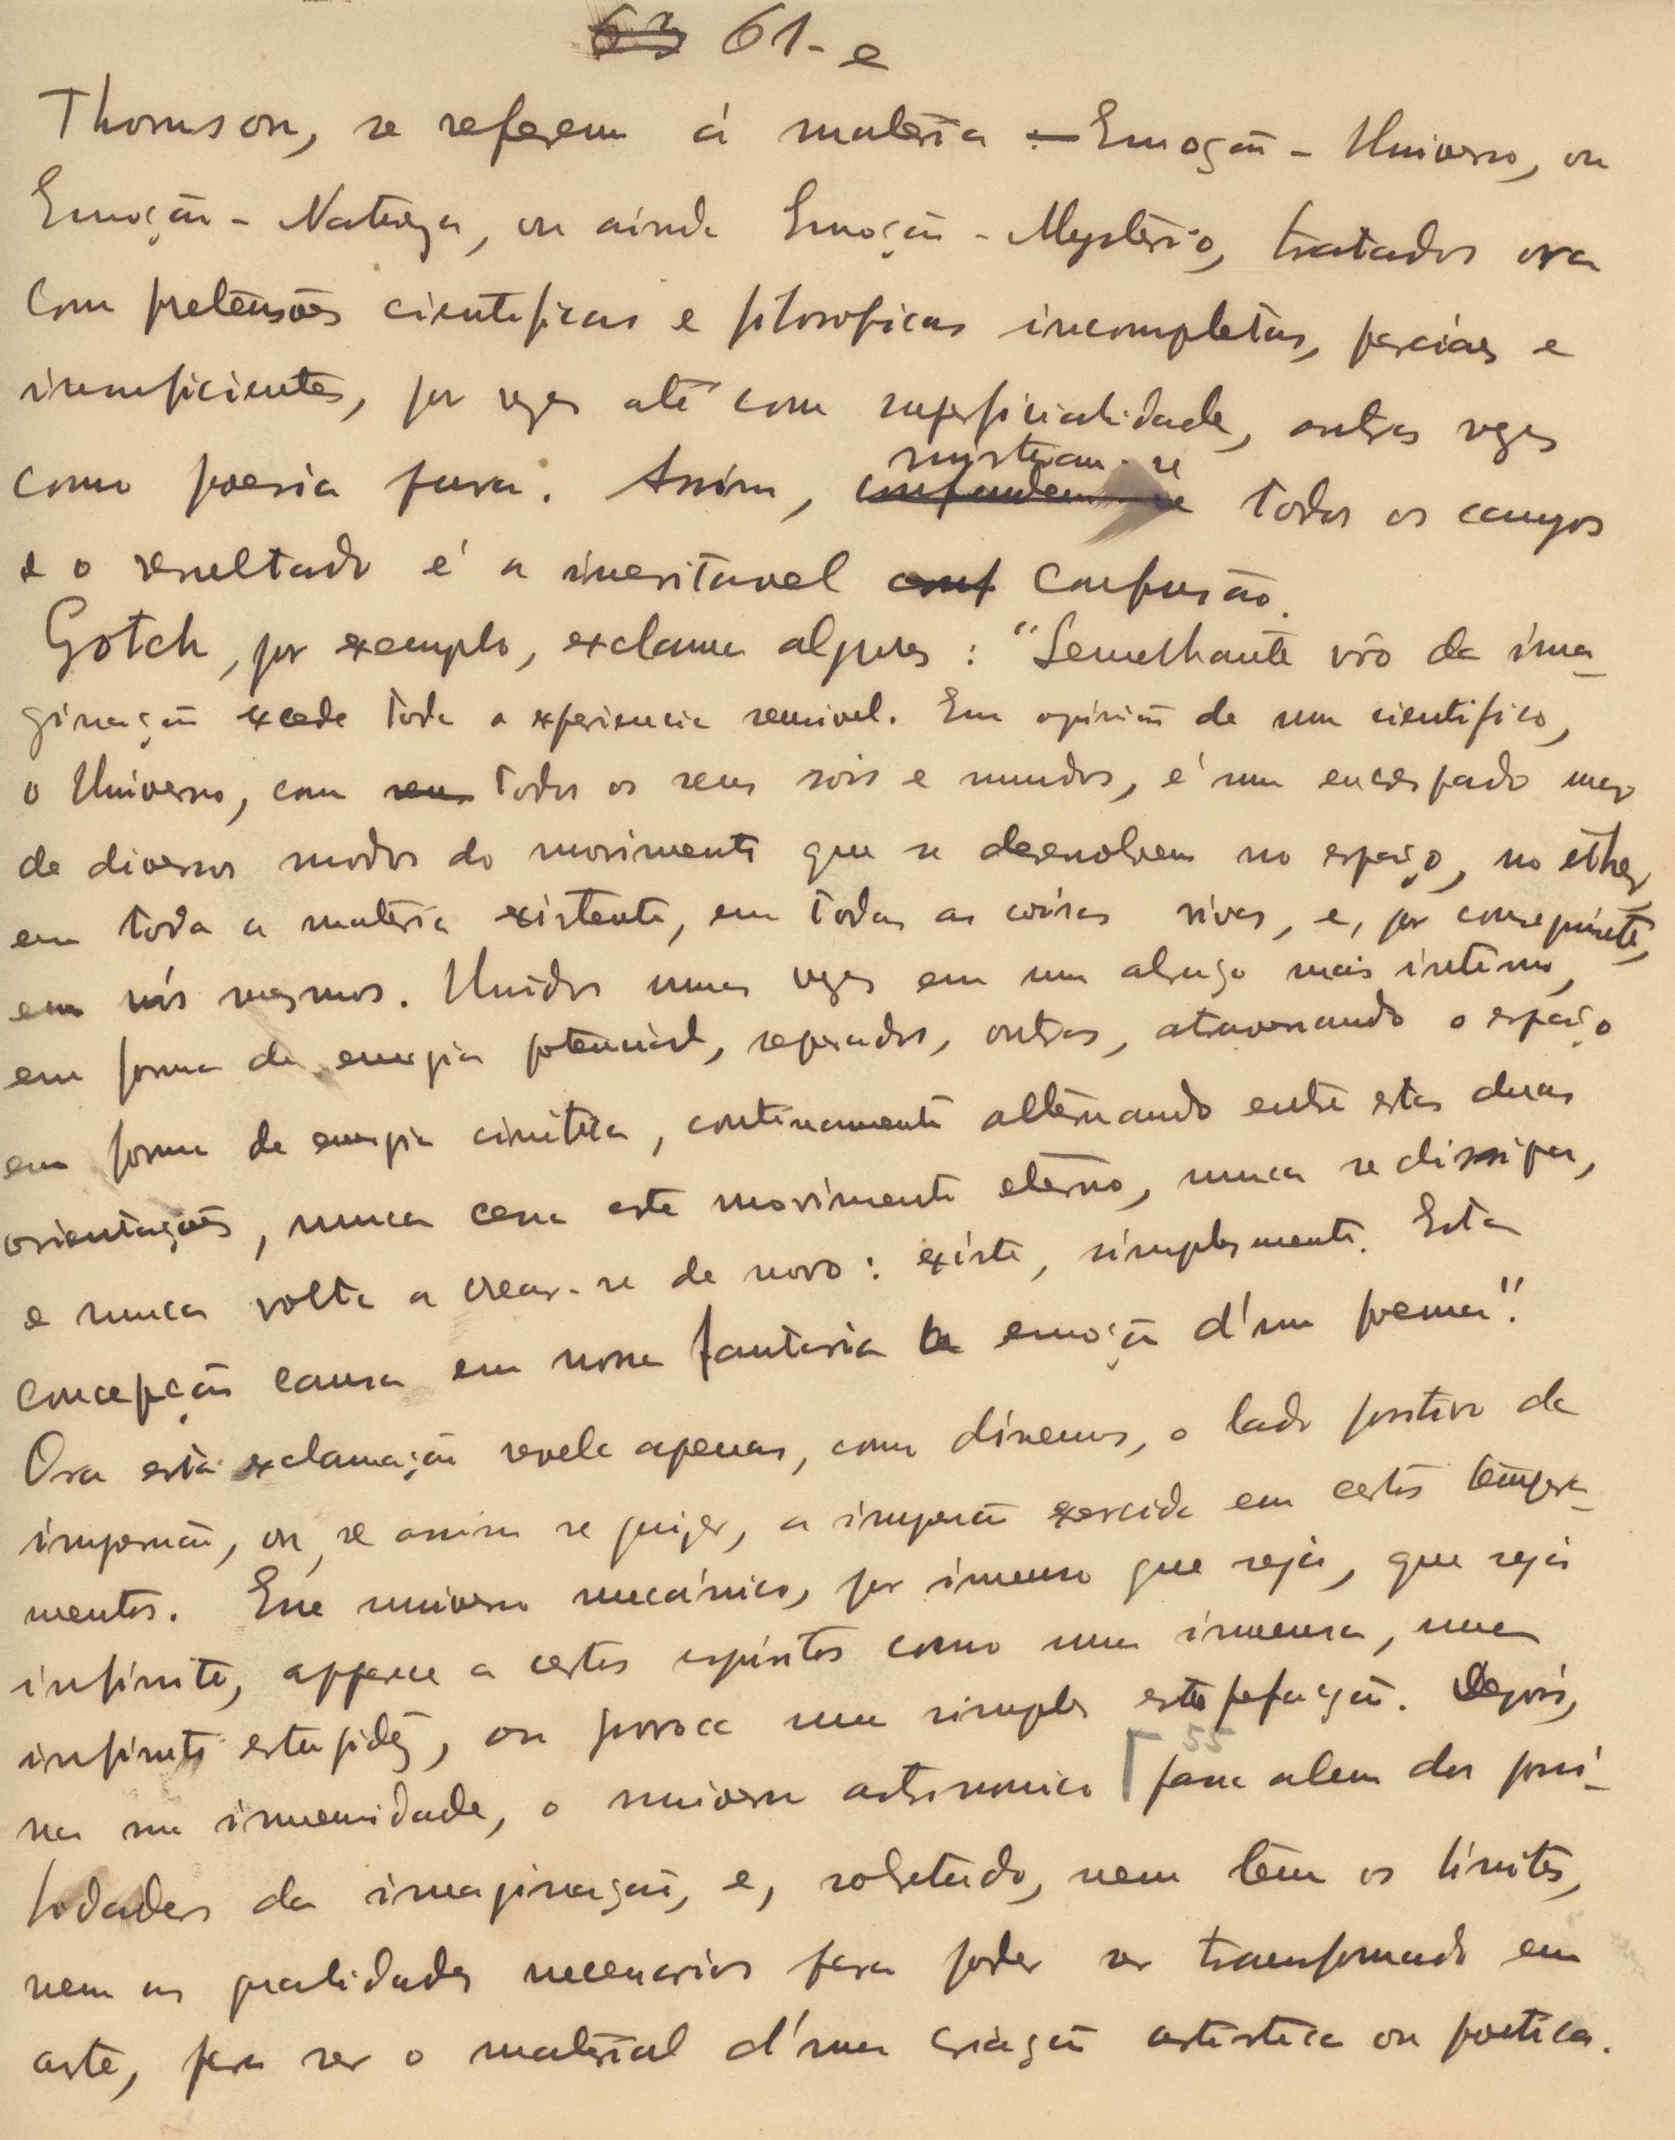 63 61-e
Thomson, se referem á materia - Emoção - Universo, ou
Emoção - Natureza, ou ainda Emoção - Mysterio, tratados ora
com pretensões cientificas e filosoficas incompletas, parciaes e
insuficientes, por vezes até com superficialidade, outras vezes
como poesia pura. Assim, confundem-se misturam-se todos os campos
e o resultado é a inevitavel conf confusão.
Gotch, por exemplo, exclama algures : "Semelhante vôo da ima-
ginação excede toda a experiencia sensivel. Em opinião de um cientifico,
o Universo, com seus todos os seus sois e mundos, é um encrespado mar
de diversos modos do movimento que se desenvolvem no espaço, no ether,
em toda a materia existente, em todas as coisas vivas, e, por conseguinte,
em nós mesmos. Unidos umas vezes em um abraço mais intimo,
em forma de energia potencial, separados, outras, atravessando o espaço
em forma de energia cinetica, continuamente alternando entre estas duas
orientações, nunca cessa este movimento eterno, nunca se dissipa,
e nunca volta a crear-se de novo : existe, simplesmente. Esta
concepção causa em nossa fantasia a emoção d'um poema".
Ora esta exclamação revela apenas, como dissemos, o lado positivo da
impressão, ou, se assim se quizer, a impressão exercida em certos tempera-
mentos. Esse universo mecánico, por imenso que seja, que seja
infinito, apparece a certos espiritos como uma immensa, uma
infinita estupidez, ou provoca uma simples estupefacção. Depois,
na sua immensidade, o universo astronomico 55 passa alem das possi-
bilidades da imaginação, e, sobretudo, nem tem os limites,
nem as qualidades necessarias para poder ser transformado em
arte, para ser o material d'uma criação artistica ou poetica.